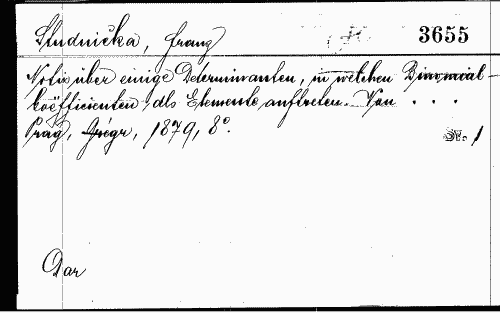 Studnička, Franz 3655
Notiz über einige Determinanten, in welchen Binomial-
koëffizienten als Elemente auftreten. Von . . .
Prag, Grégr, 1879, 8°. Nr. 1
Dar